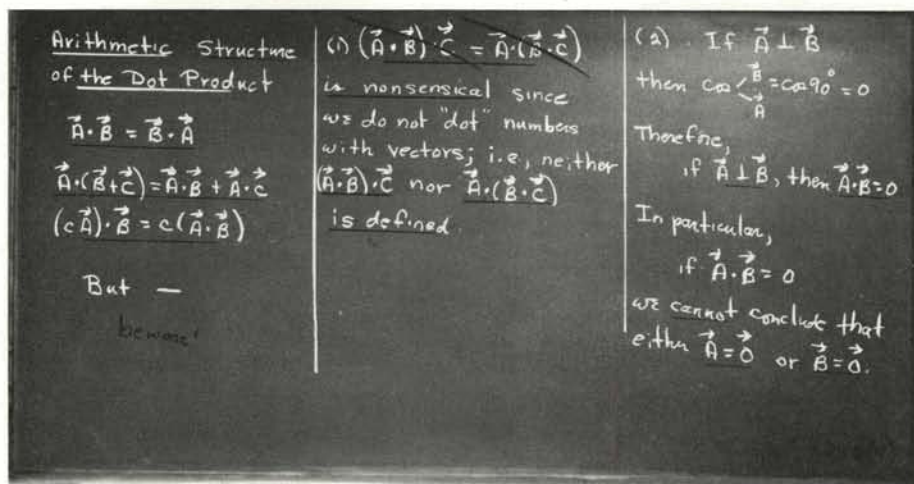 Arithmetic Structure
of the Dot Product
A⃗·B⃗ = B⃗·A⃗
A⃗·(B⃗+C⃗)=A⃗·B⃗ + A⃗·C⃗
(cA⃗)·B⃗ = c(A⃗·B⃗)
But —
beware!
(1) (A⃗·B⃗)·C⃗ = A⃗·(B⃗·C⃗)
is nonsensical since
we do not "dot" numbers
with vectors; i.e., neither
(A⃗·B⃗)·C⃗ nor A⃗·(B⃗·C⃗)
is defined.
(2). If A⃗ ⊥ B⃗
then cos ∢ B⃗ A⃗ = cos 90° = 0
Therefore,
if A⃗ ⊥ B⃗, then A⃗·B⃗=0
In particular,
if A⃗·B⃗ = 0
we cannot conclude that
either A⃗ = 0⃗ or B⃗ = 0⃗.